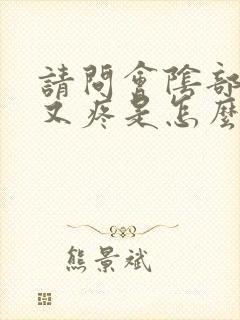 請問會陰部
又疼是怎麼
熊景斌